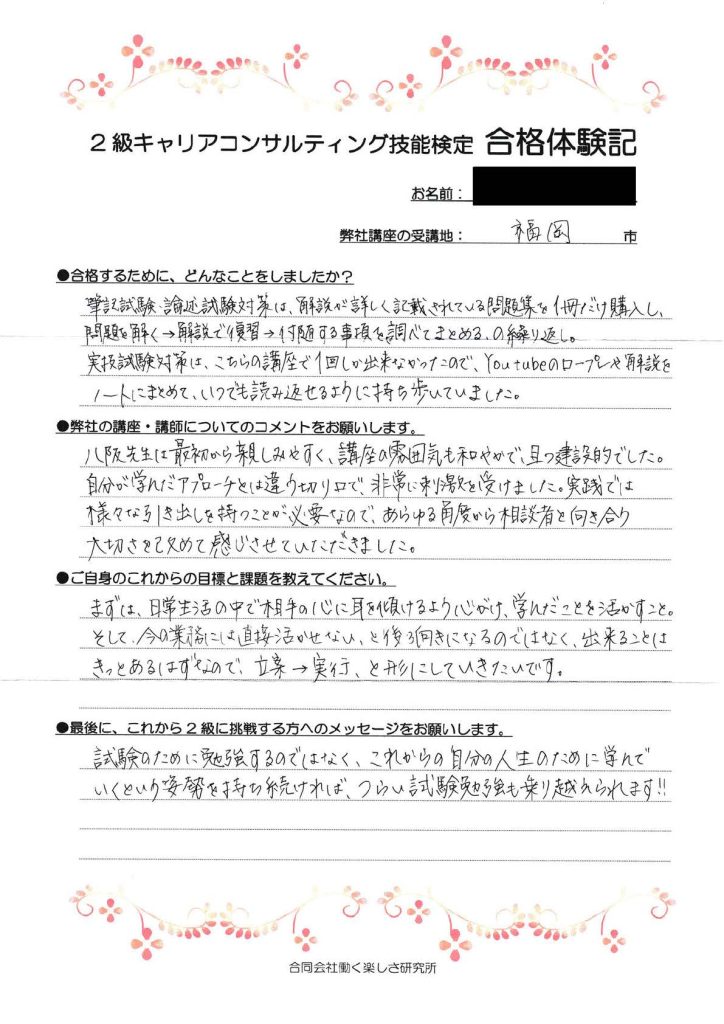 2級キャリアコンサルティング技能検定 合格体験記
お名前：
弊社講座の受講地： 福岡 市
●合格するために、どんなことをしましたか？
筆記試験・論述試験対策は、解説が詳しく記載されている問題集を1冊だけ購入し、
問題を解く→解説で復習→付随する事項を調べてまとめる、の繰り返し。
実技試験対策は、こちらの講座で1回しか出来なかったので、Youtubeのロープレや解説を
ノートにまとめて、いつでも読み返せるように持ち歩いていました。
●弊社の講座・講師についてのコメントをお願いします。
八阪先生は最初から親しみやすく、講座の雰囲気も和やかで、且つ建設的でした。
自分が学んだアプローチとは違う切り口で、非常に刺激を受けました。実践では
様々な引き出しを持つことが必要なので、あらゆる角度から相談者と向き合う
大切さを改めて感じさせていただきました。
●ご自身のこれからの目標と課題を教えてください。
まずは、日常生活の中で相手の心に耳を傾けるよう心がけ、学んだことを活かすこと。
そして、今の業務には直接活かせない、と後ろ向きになるのではなく、出来ることは
きっとあるはずなので、立案→実行、と形にしていきたいです。
●最後に、これから2級に挑戦する方へのメッセージをお願いします。
試験のために勉強するのではなく、これからの自分の人生のために学んで
いくという姿勢を持ち続ければ、つらい試験勉強も乗り越えられます!!
合同会社働く楽しさ研究所